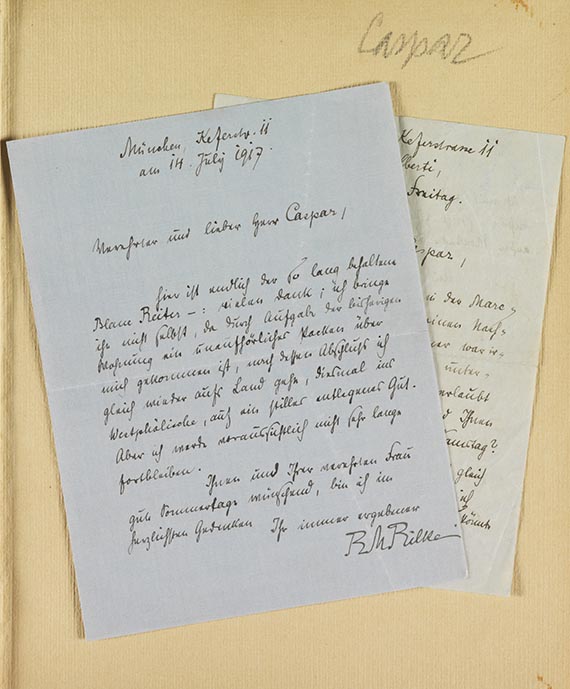 Caspar
München, Keferstr. 11
am 14. July 1917.
Verehrter und lieber Herr Caspar,
hier ist endlich der so lang behaltene
Blaue Reiter –: vielen Dank; ich bringe
ihn nicht selbst, da durch Aufgabe der bisherigen
Wohnung ein unaufhörliches Packen über
mich gekommen ist, nach dessen Abschluß ich
gleich wieder aufs Land gehe, diesmal ins
Westphälische, auf ein stilles entlegenes Gut.
Aber ich werde voraussichtlich nicht sehr lange
fortbleiben.
Ihnen und Ihrer verehrten Frau
gute Sommertage wünschend, bin ich im
herzlichsten Gedenken Ihr immer ergebener
RMRilke
Keferstrasse 11
Freitag.
Caspar,
in der Marc-
einen Nach-
war
unter-
erlaubt
Ihnen
Samstag?
gleich
ich
könnte